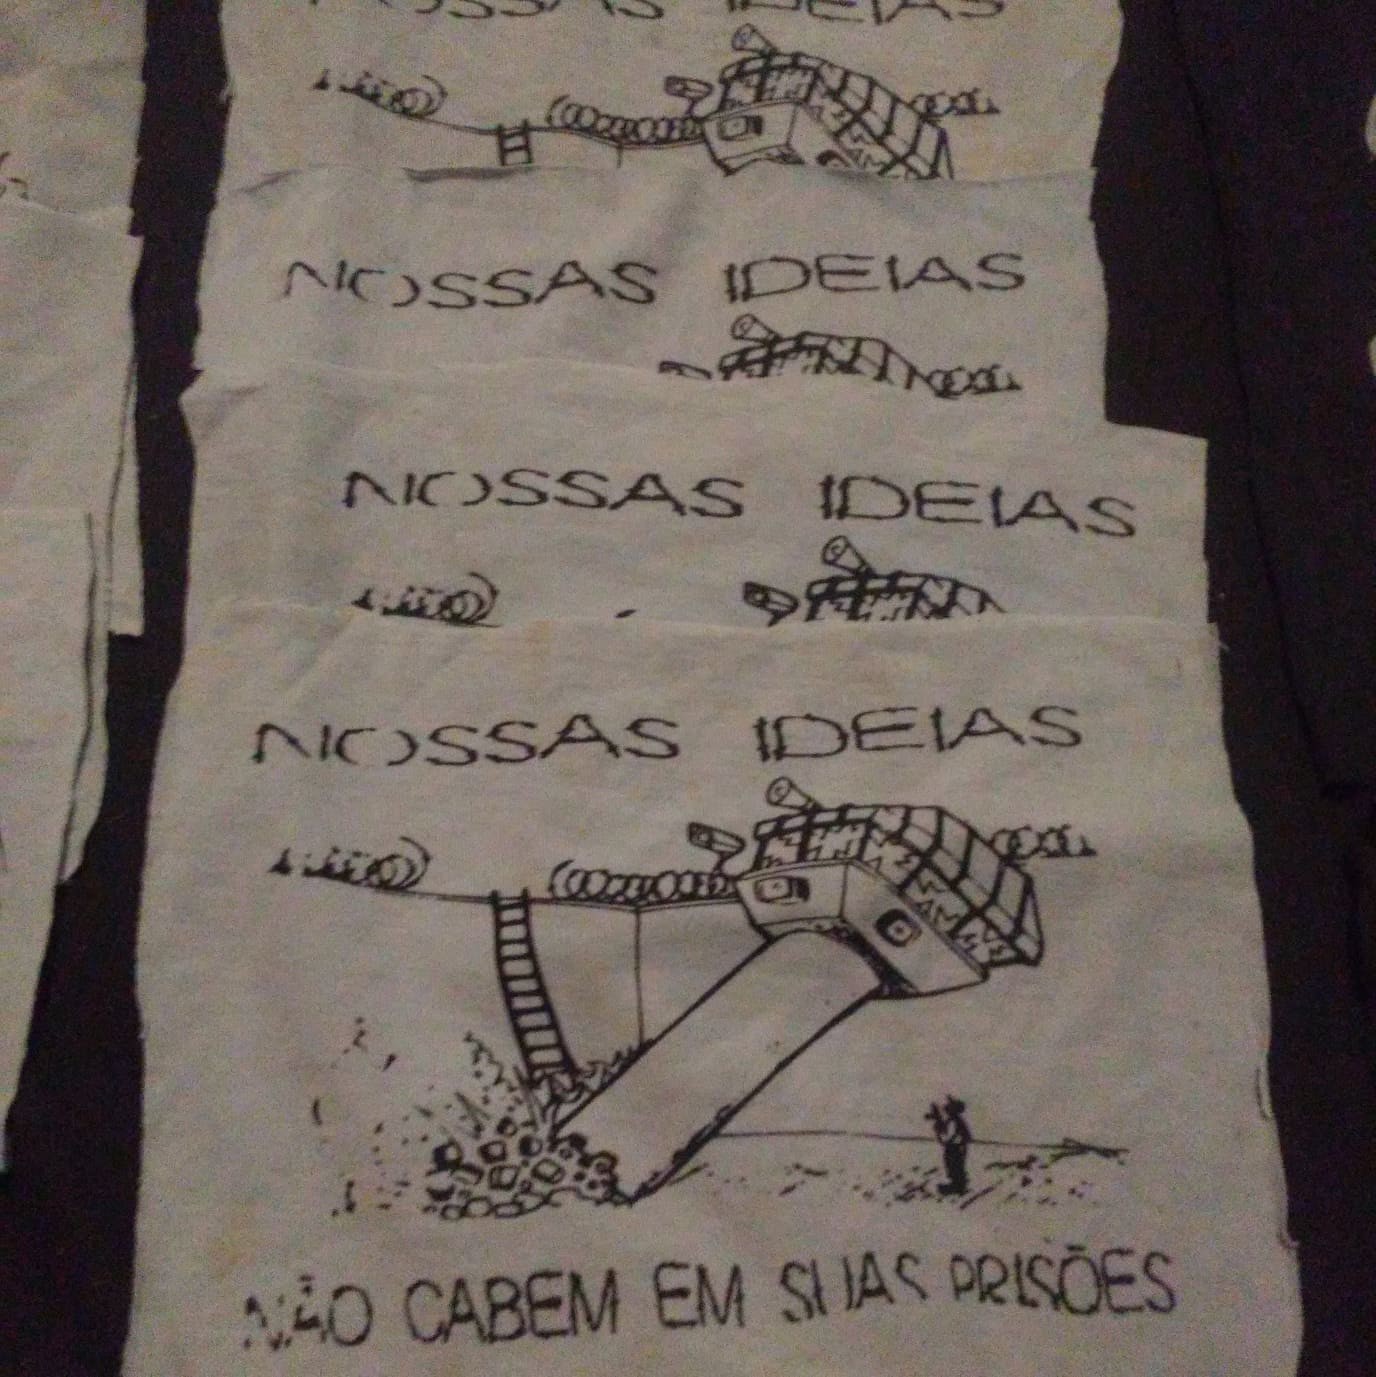 NOSSAS IDEIAS
NOSSAS IDEIAS
NOSSAS IDEIAS
NOSSAS IDEIAS
NÃO CABEM EM SUAS PRISÕES